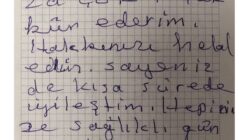 za çok
kür ederim.
Hakkınızı helal
edin. sayeniz
de kısa sürede
iyileştim. Hepini
ze sağlıklı gün